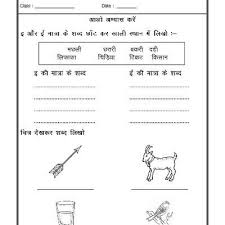 Class : Date :
आओ अभ्यास करें
इ और ई मात्रा के शब्द छाँट कर खाली स्थान में लिखो :-
मछली छतरी बकरी दर्दी
लिफाफा चिड़िया टिकट किसान
इ की मात्रा के शब्द ई की मात्रा के शब्द
चित्र देखकर शब्द लिखो